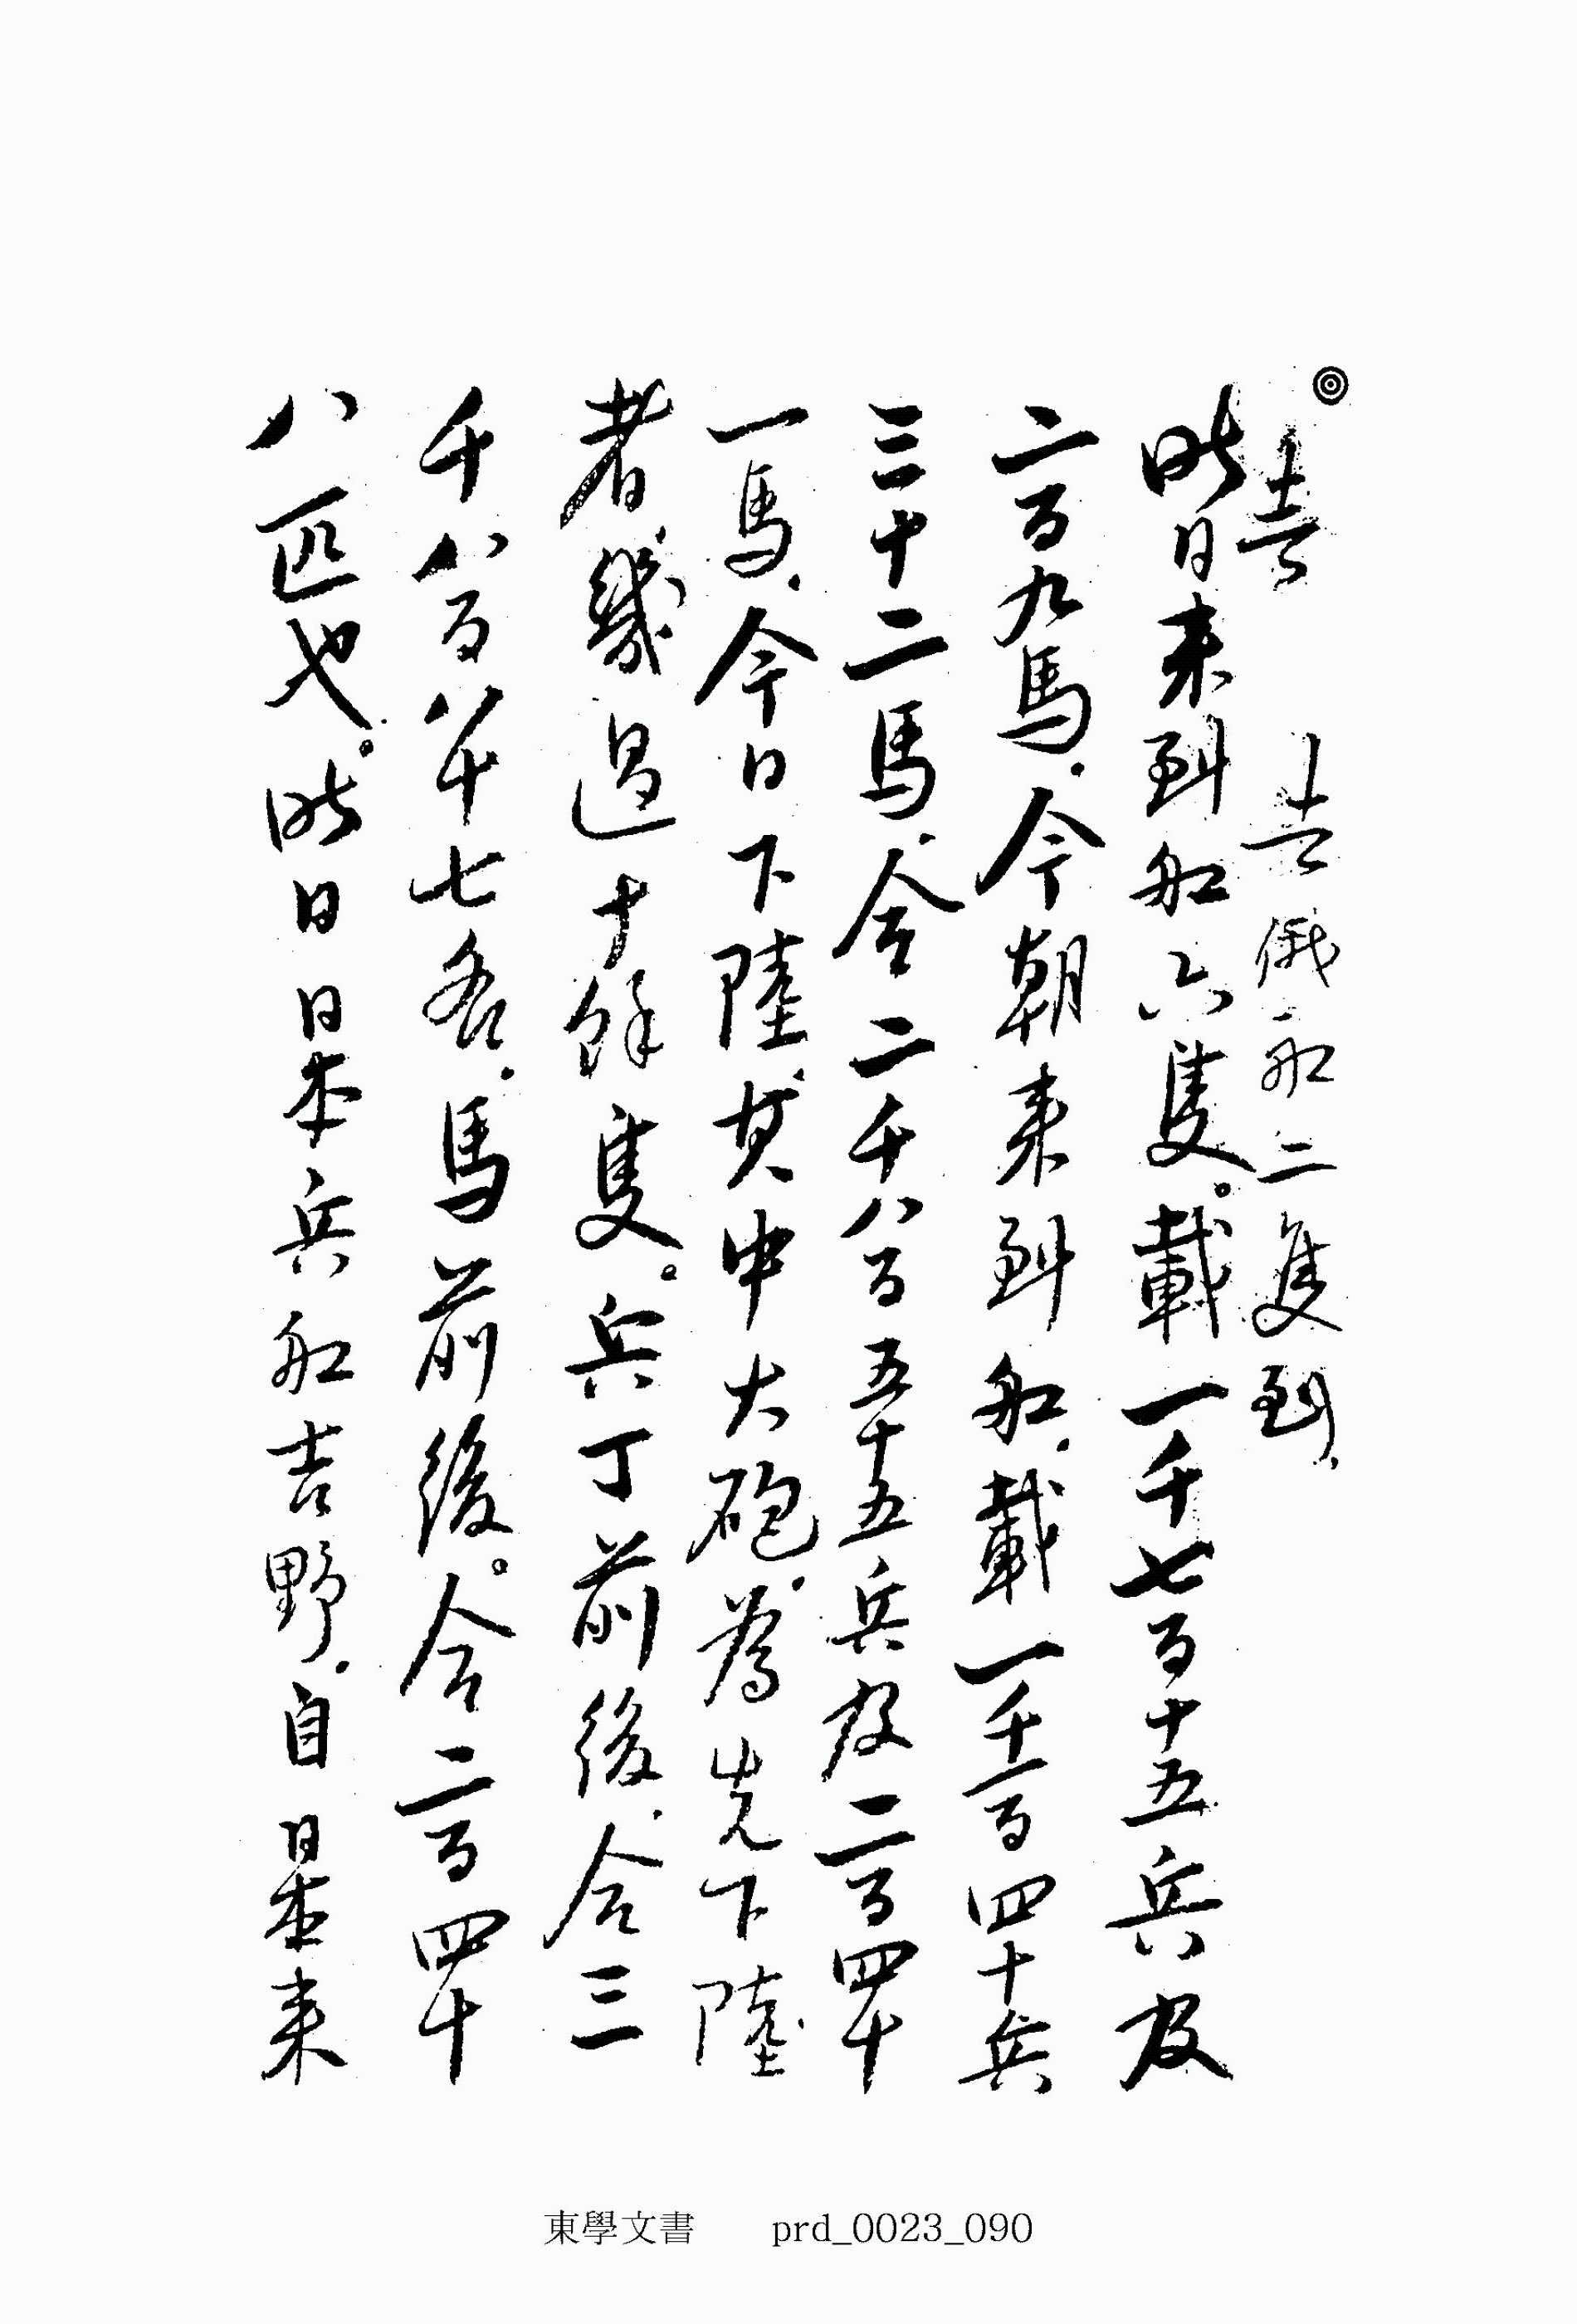 俄船二隻到、
昨日来到船六隻。載一千七百十五兵及
二百九馬、今朝来到船、載一千一百四十兵
三十二馬、合二千八百五十五兵及二百四十
一馬、今日下陸、其中大砲、為先下陸
者、幾過十餘隻。兵丁前後、合三
千八百八十七名、馬前後。合二百四十
八匹也。昨日日本兵船吉野、自日本来
東學文書 prd_0023_090